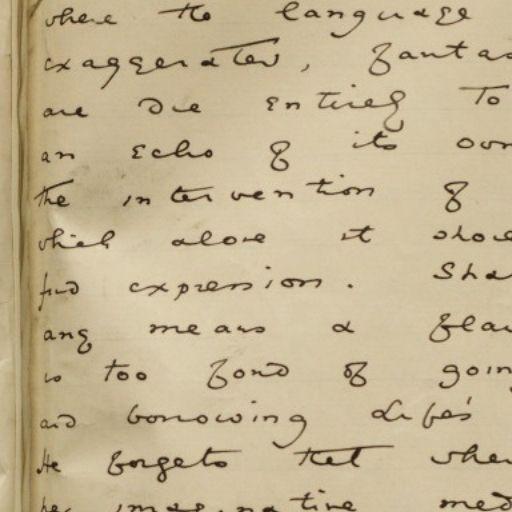 where the language
exaggerated, fantas
are due entirely to
an echo of its own
the intervention of
which alone it shoul
find expression. Sha
any means a flaw
is too fond of goin
and borrowing life's
He forgets that when
her imaginative med